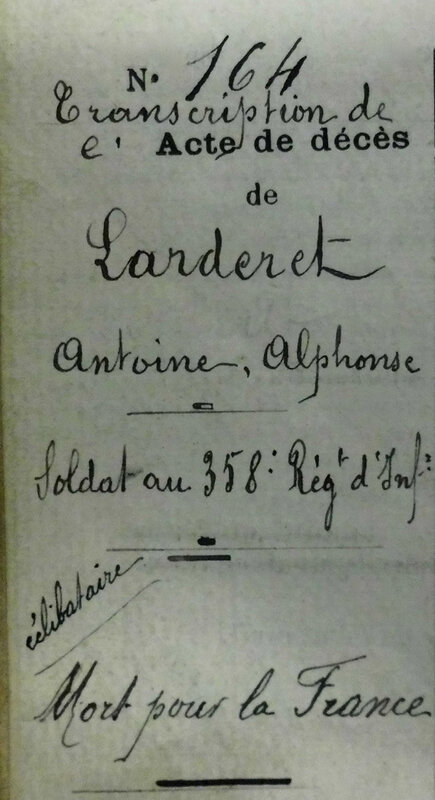 N. 164
Transcription de
l' Acte de décès
de
Larderet
Antoine, Alphonse
Soldat au 358e Régt d'Infie
célibataire
Mort pour la France